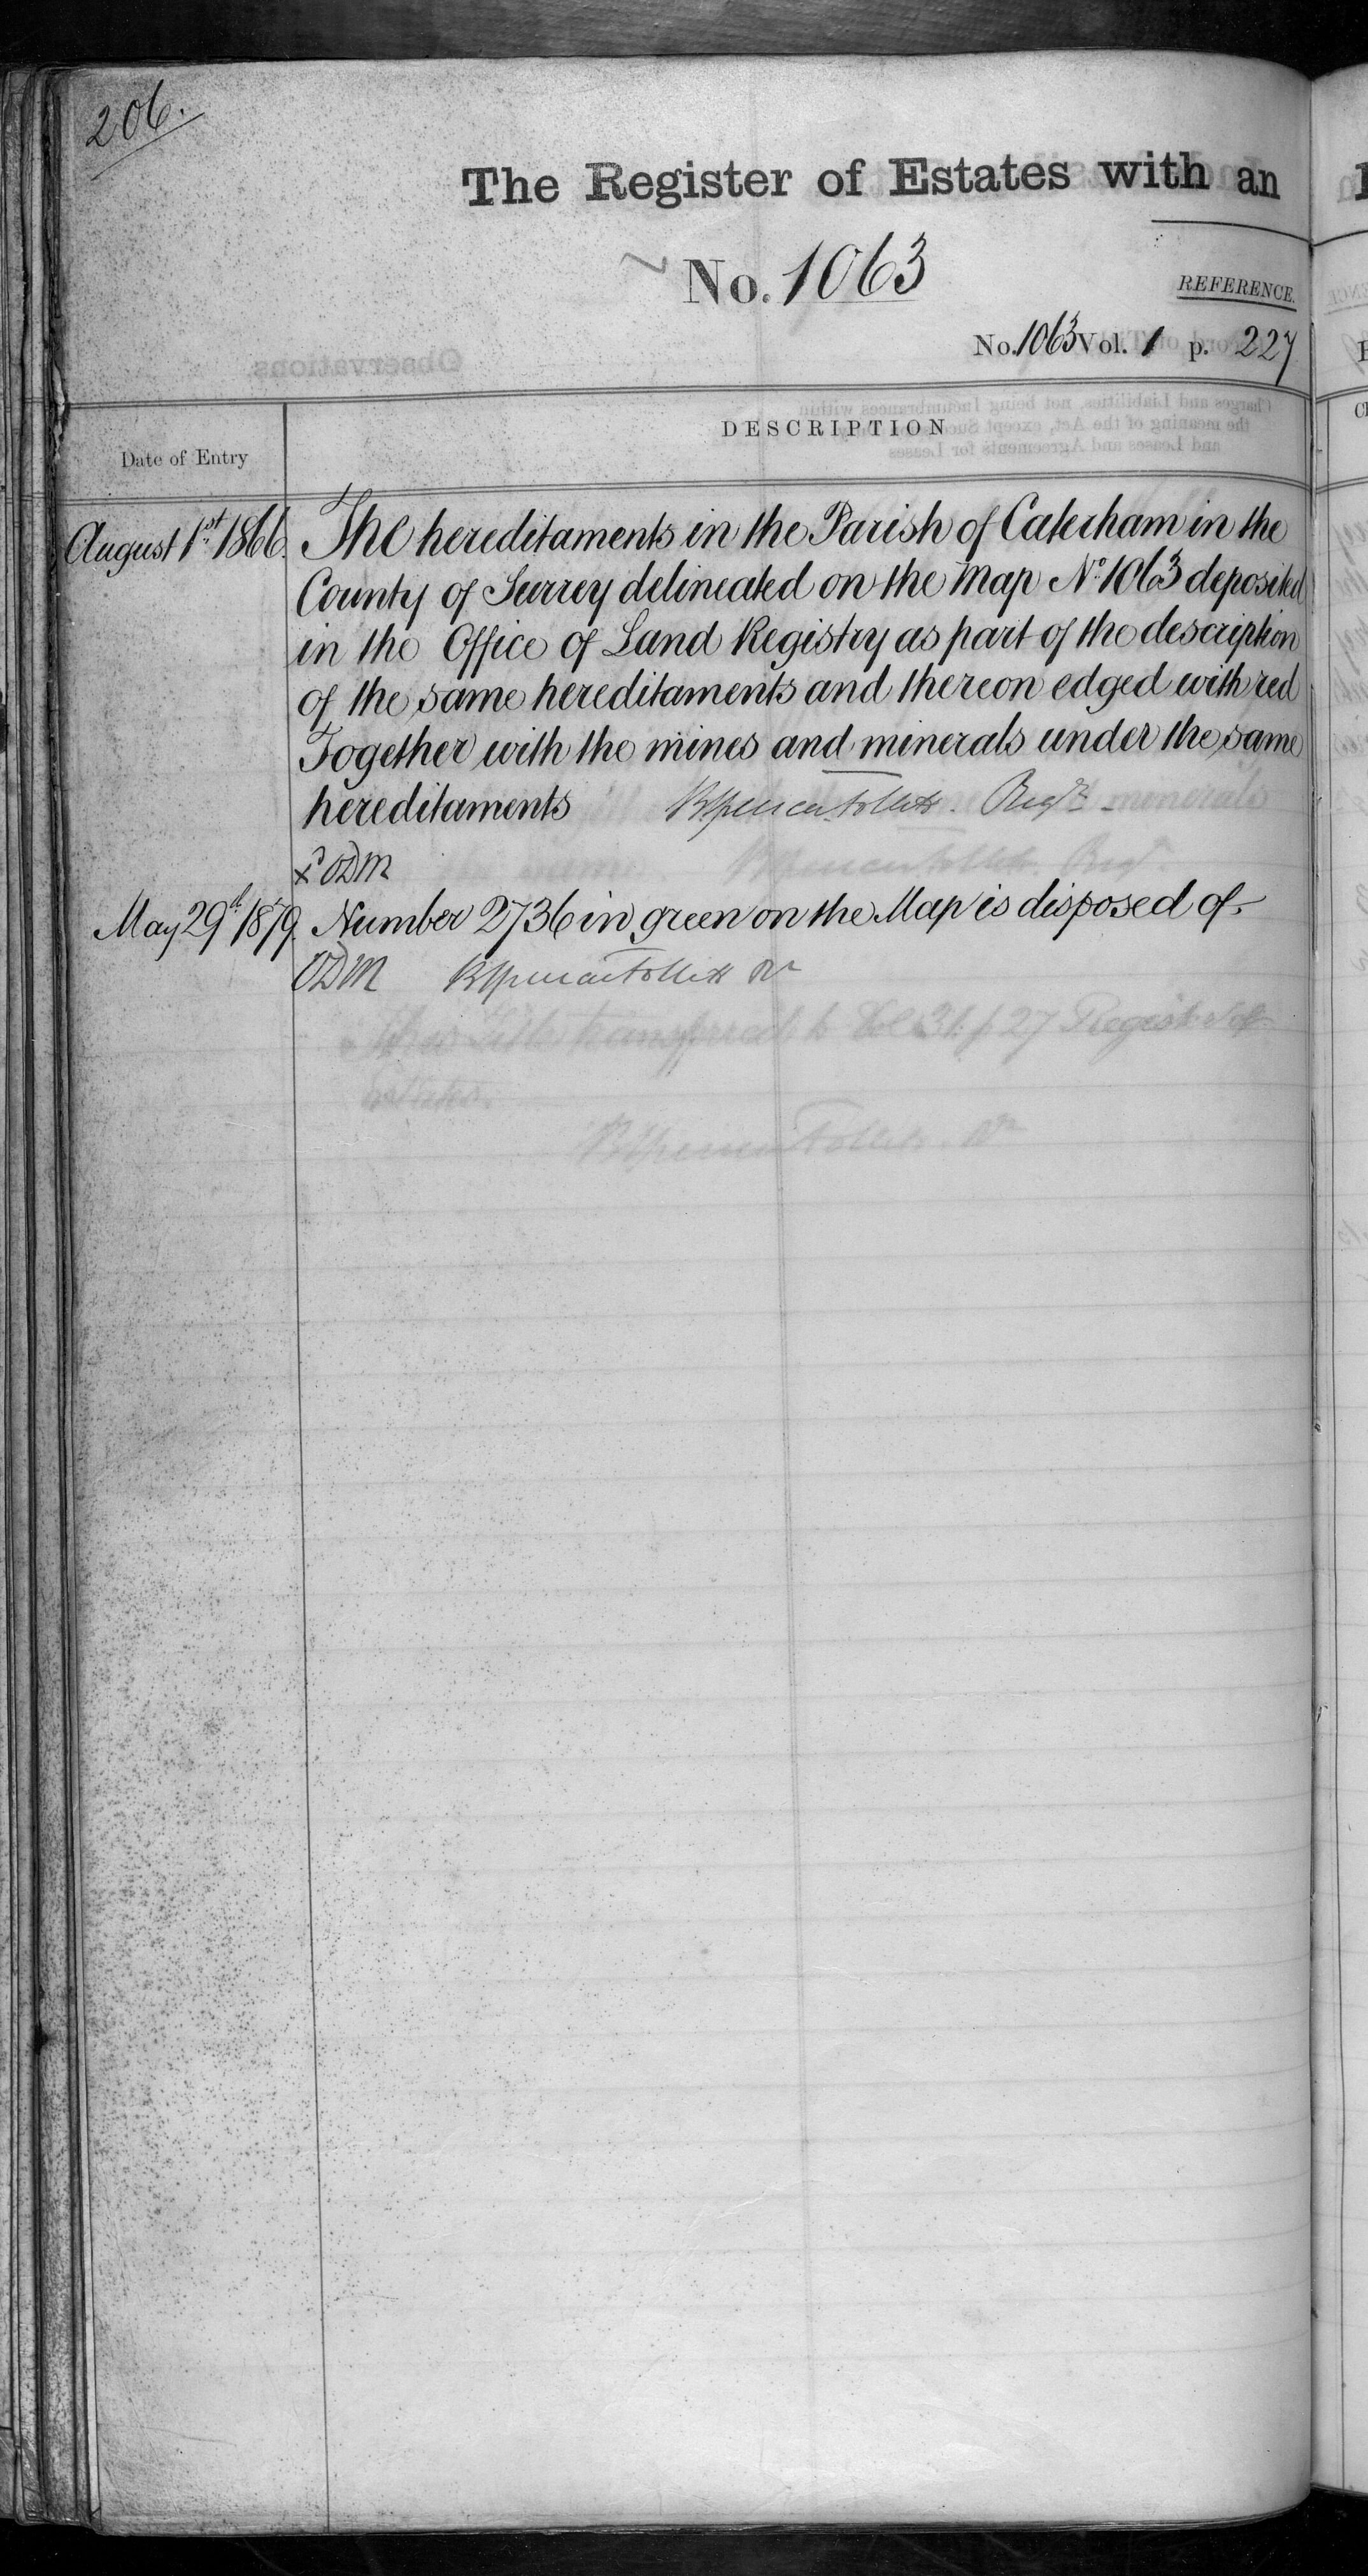 206.
The Register of Estates with an
No. 1063
REFERENCE.
No. 1063 Vol. 1 p. 227
DESCRIPTION
Date of Entry
August 1st 1866. The hereditaments in the Parish of Caterham in the
County of Surrey delineated on the Map No. 1063 deposited
in the Office of Land Registry as part of the description
of the same hereditaments and thereon edged with red
Together with the mines and minerals under the same
hereditaments Brent Spencer Follett Regr.
ODM
May 29th 1879. Number 2736 in green on the Map is disposed of.
ODM